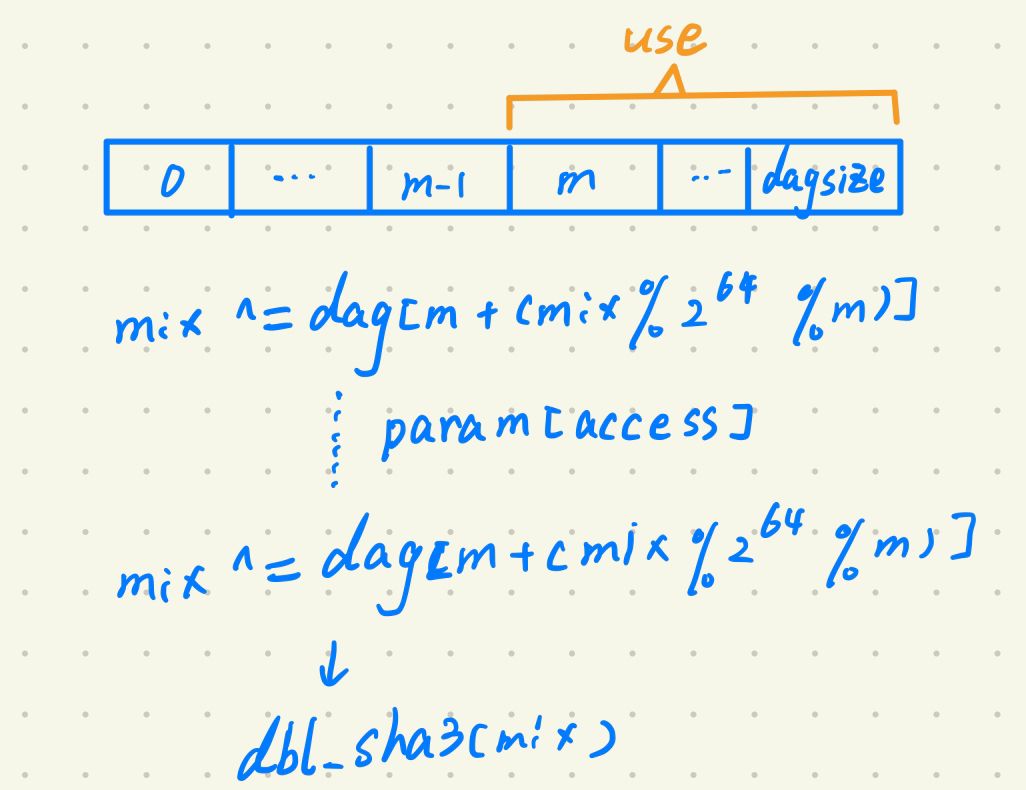 use
0 ... m-1 m ... dagsize
mix ^= dag[m + (mix % 2^64 % m)]
param[access]
mix ^= dag[m + (mix % 2^64 % m)]
↓
dbl_sha3(mix)